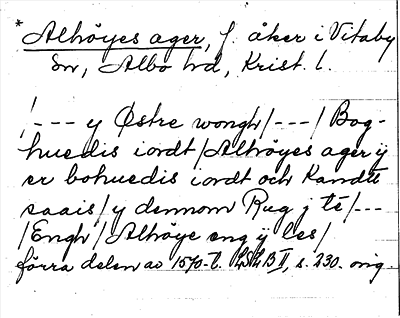 *Alhöyes ager, f. åker i Vitaby
sn, Albo hd, Krist. l.
/--- y Østre wongh/---/Bog-
huedis iordt/Alhöyes ager ÿ
er bohuedis iordt och kandtt
saais/y dennom Rug j tē/---
/Engh/Alhöye eng ÿ les/
förra delen av 1570-t. B II, s. 230. orig.